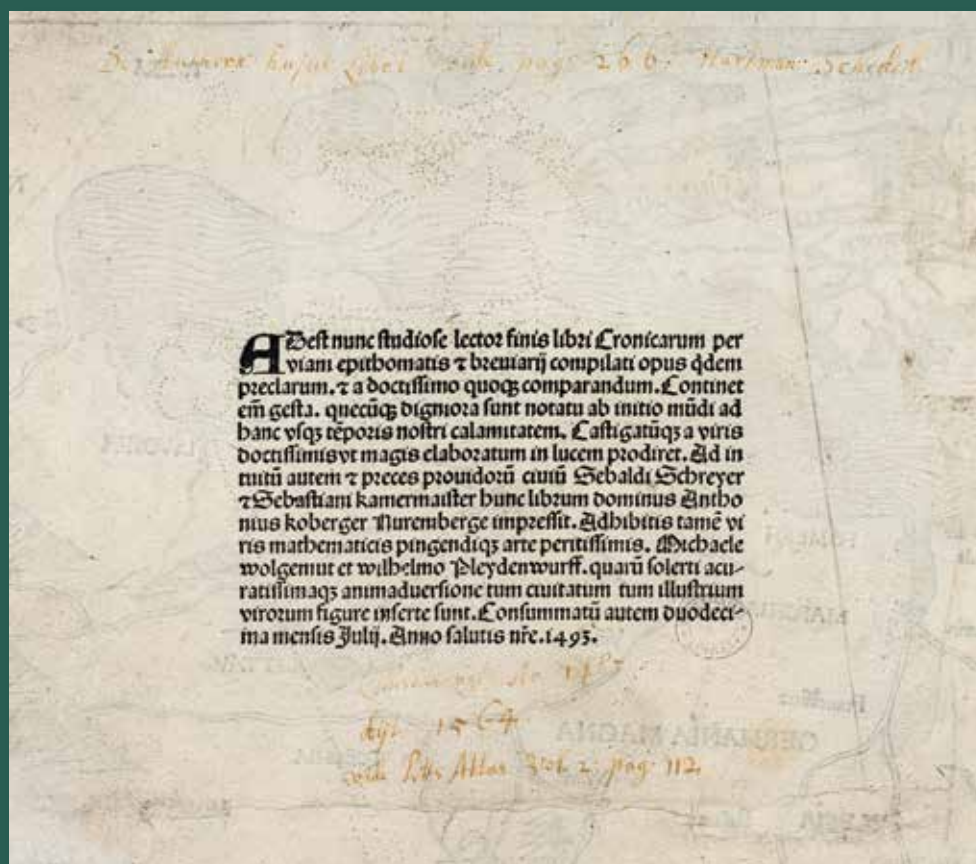 hujus Libri pag. 266. Hartman Schedel
ADest nunc studiose lector finis libri Cronicarum per
viam epithomatis ⁊ breuiarij compilati opus q̄dem
preclarum. ⁊ a doctissimo quoqꝫ comparandum. Continet
em̄ gesta. quecūqꝫ digniora sunt notatu ab initio mūdi ad
hanc vsqꝫ tēporis nostri calamitatem. Castigatūqꝫ a viris
doctissimis vt magis elaboratum in lucem prodiret. Ad in
tuitū autem ⁊ preces prouidorū ciuiū Sebaldi Schreyer
⁊ Sebastiani kamermaister hunc librum dominus Antho
nius koberger Nuremberge impressit. Adhibitis tamē vi
ris mathematicis pingendiqꝫ arte peritissimis. Michaele
wolgemut et wilhelmo Pleydenwurff. quarū solerti acu-
ratissimaqꝫ animaduersione tum ciuitatum tum illustrium
virorum figure inserte sunt. Consummatū autem duodeci-
ma mensis Julij. Anno salutis nr̄e. 1493.
1564
Atlas Vol. 2. pag. 112.
GERMANIA MAGNA